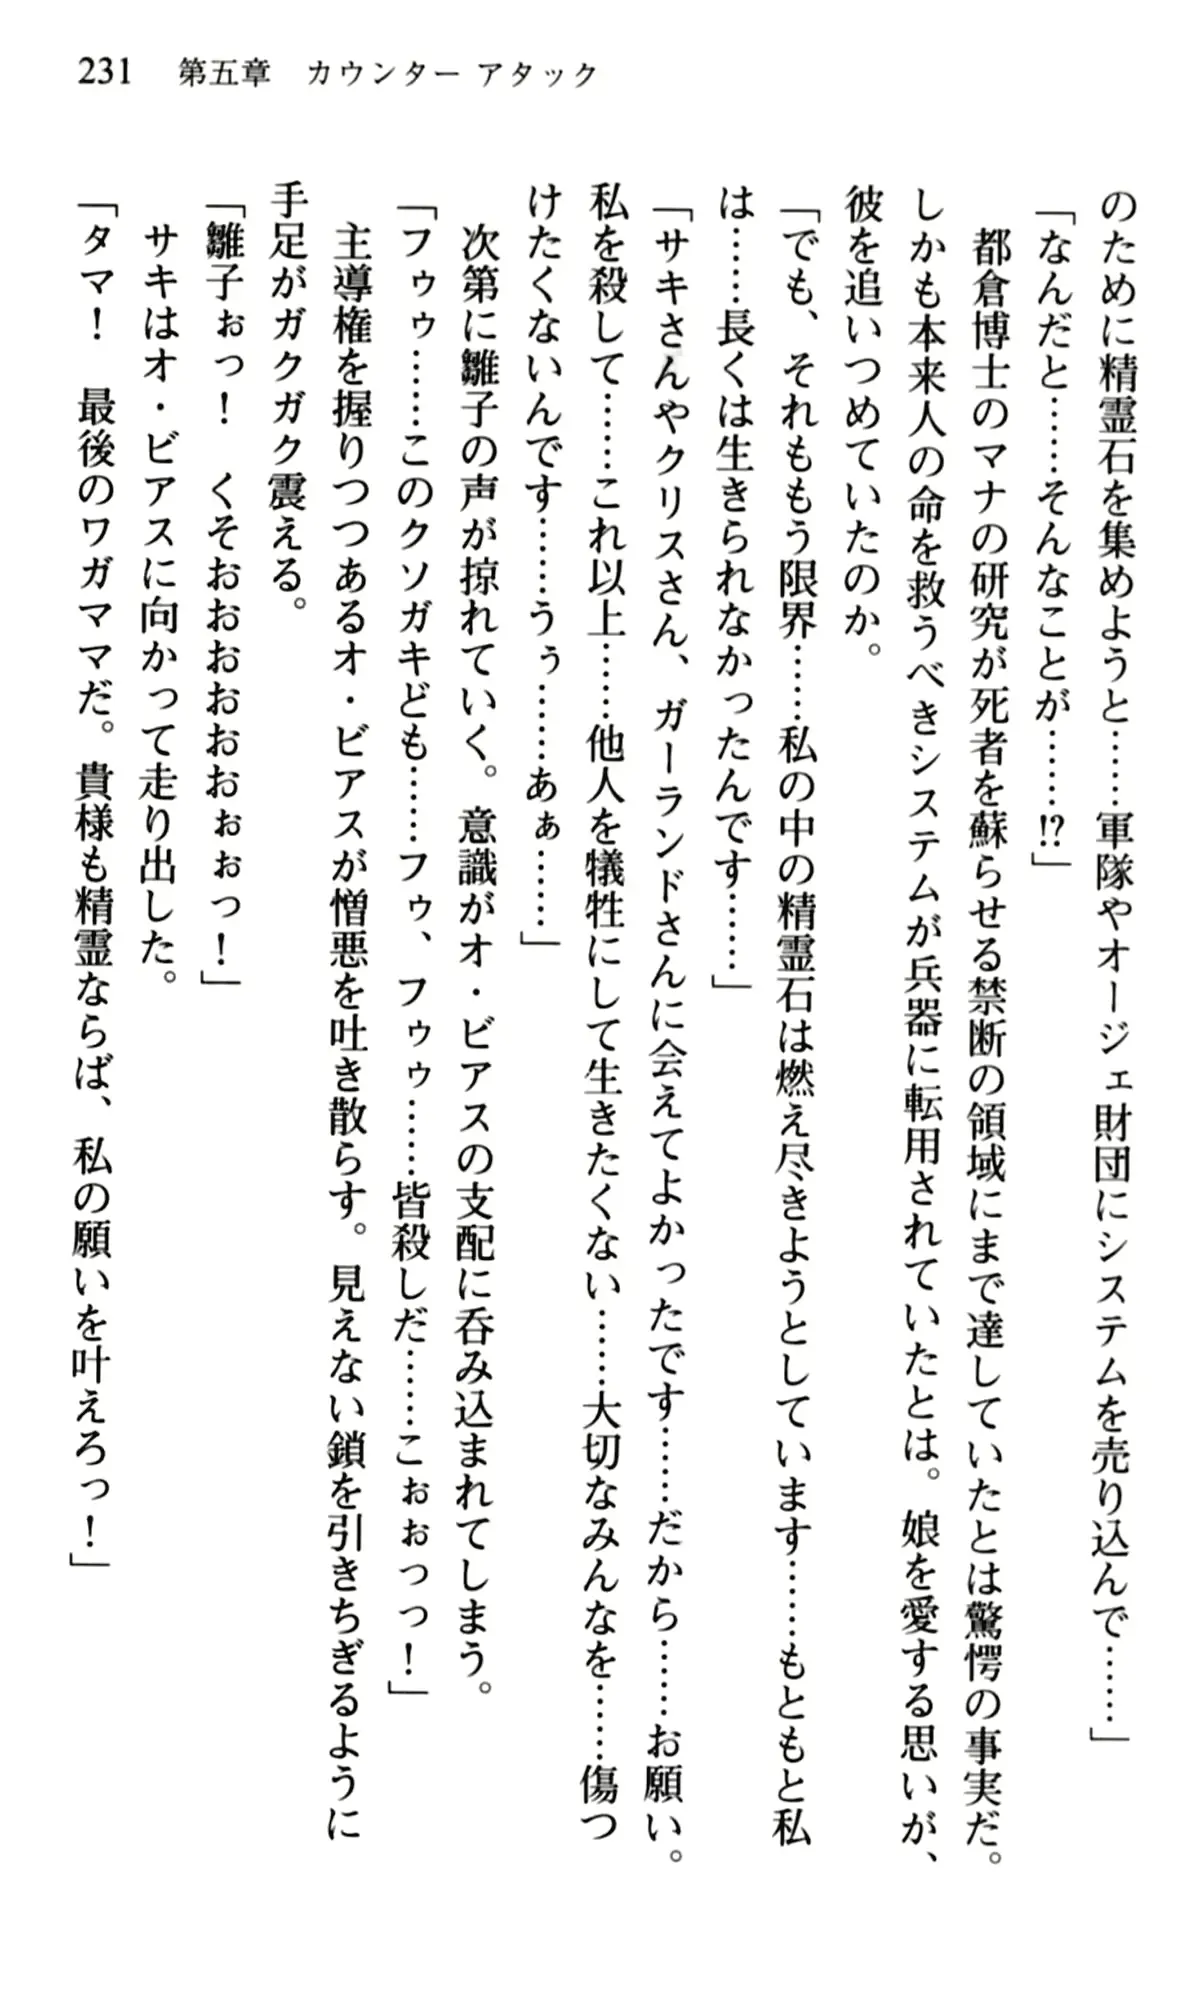 231　第五章　カウンター アタック
のために精霊石を集めようと……軍隊やオージェ財団にシステムを売り込んで……」
「なんだと……そんなことが……!?」
　都倉博士のマナの研究が死者を蘇らせる禁断の領域にまで達していたとは驚愕の事実だ。
しかも本来人の命を救うべきシステムが兵器に転用されていたとは。娘を愛する思いが、
彼を追いつめていたのか。
「でも、それももう限界……私の中の精霊石は燃え尽きようとしています……もともと私
は……長くは生きられなかったんです……」
「サキさんやクリスさん、ガーランドさんに会えてよかったです……だから……お願い。
私を殺して……これ以上……他人を犠牲にして生きたくない……大切なみんなを……傷つ
けたくないんです……うぅ……あぁ……」
　次第に雛子の声が掠れていく。意識がオ・ビアスの支配に呑み込まれてしまう。
「フゥゥ……このクソガキども……フゥ、フゥゥ……皆殺しだ……こぉぉっっ！」
　主導権を握りつつあるオ・ビアスが憎悪を吐き散らす。見えない鎖を引きちぎるように
手足がガクガク震える。
「雛子ぉっ！　くそおおおおおぉぉっ！」
　サキはオ・ビアスに向かって走り出した。
「タマ！　最後のワガママだ。貴様も精霊ならば、私の願いを叶えろっ！」